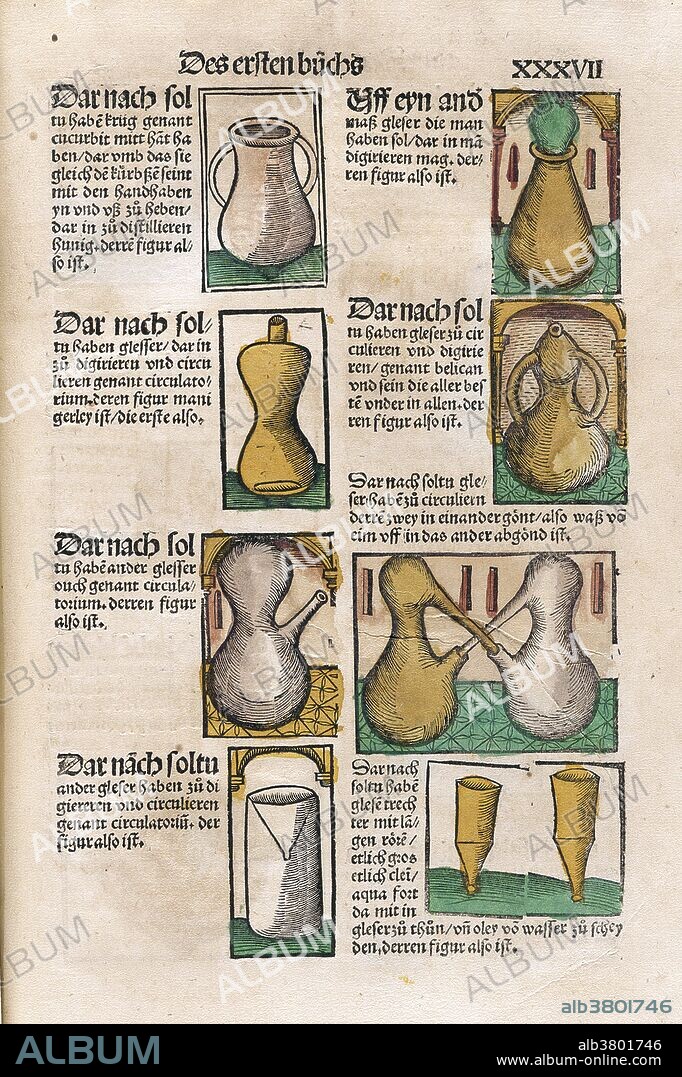 Des ersten bůchs
XXXVII
Dar nach sol
tu habē krůg genant
cucurbit mitt hāt ha
ben/dar vmb das sie
gleich dē kürbße seint
mit den handhaben
yn vnd vß zů heben/
dar in zů distillieren
hunig. derrē figur al-
so ist.
Dar nach sol-
tu haben glesser/dar in
zů digirieren vnd circu
lieren genant circulato-
rium.deren figur mani
gerley ist/die erste also.
Dar nach sol
tu habē ander glesser
ouch genant circula-
torium. derren figur
also ist.
Dar nāch soltu
ander gleser haben zů di
giereren vnd circulieren
genant circulatoriū. der
figur also ist.
Vff eyn and
maß gleser die man
haben sol/dar in mā
digirieren mag. der-
ren figur also ist.
Dar nach sol
tu haben gleser zů cir
culieren vnd digirie
ren/genant belican
vnd sein die aller bes
tē vnder in allen.der
ren figur also ist.
Dar nach soltu gle-
ser habē zů circuliern
derrē zwey in einander gönt/also waß vō
eim vff in das ander abgönd ist.
Dar nach
soltu habē
glesē trech
ter mit lā-
gen rörē/
etlich gros
etlich cleī/
aqua fort
da mit in
gleser zů thůn/vñ oley vō wasser zů schey
den.derren figur also ist.
ALBUM
alb3801746
ALBUM
alb3801746
www.album-online.com